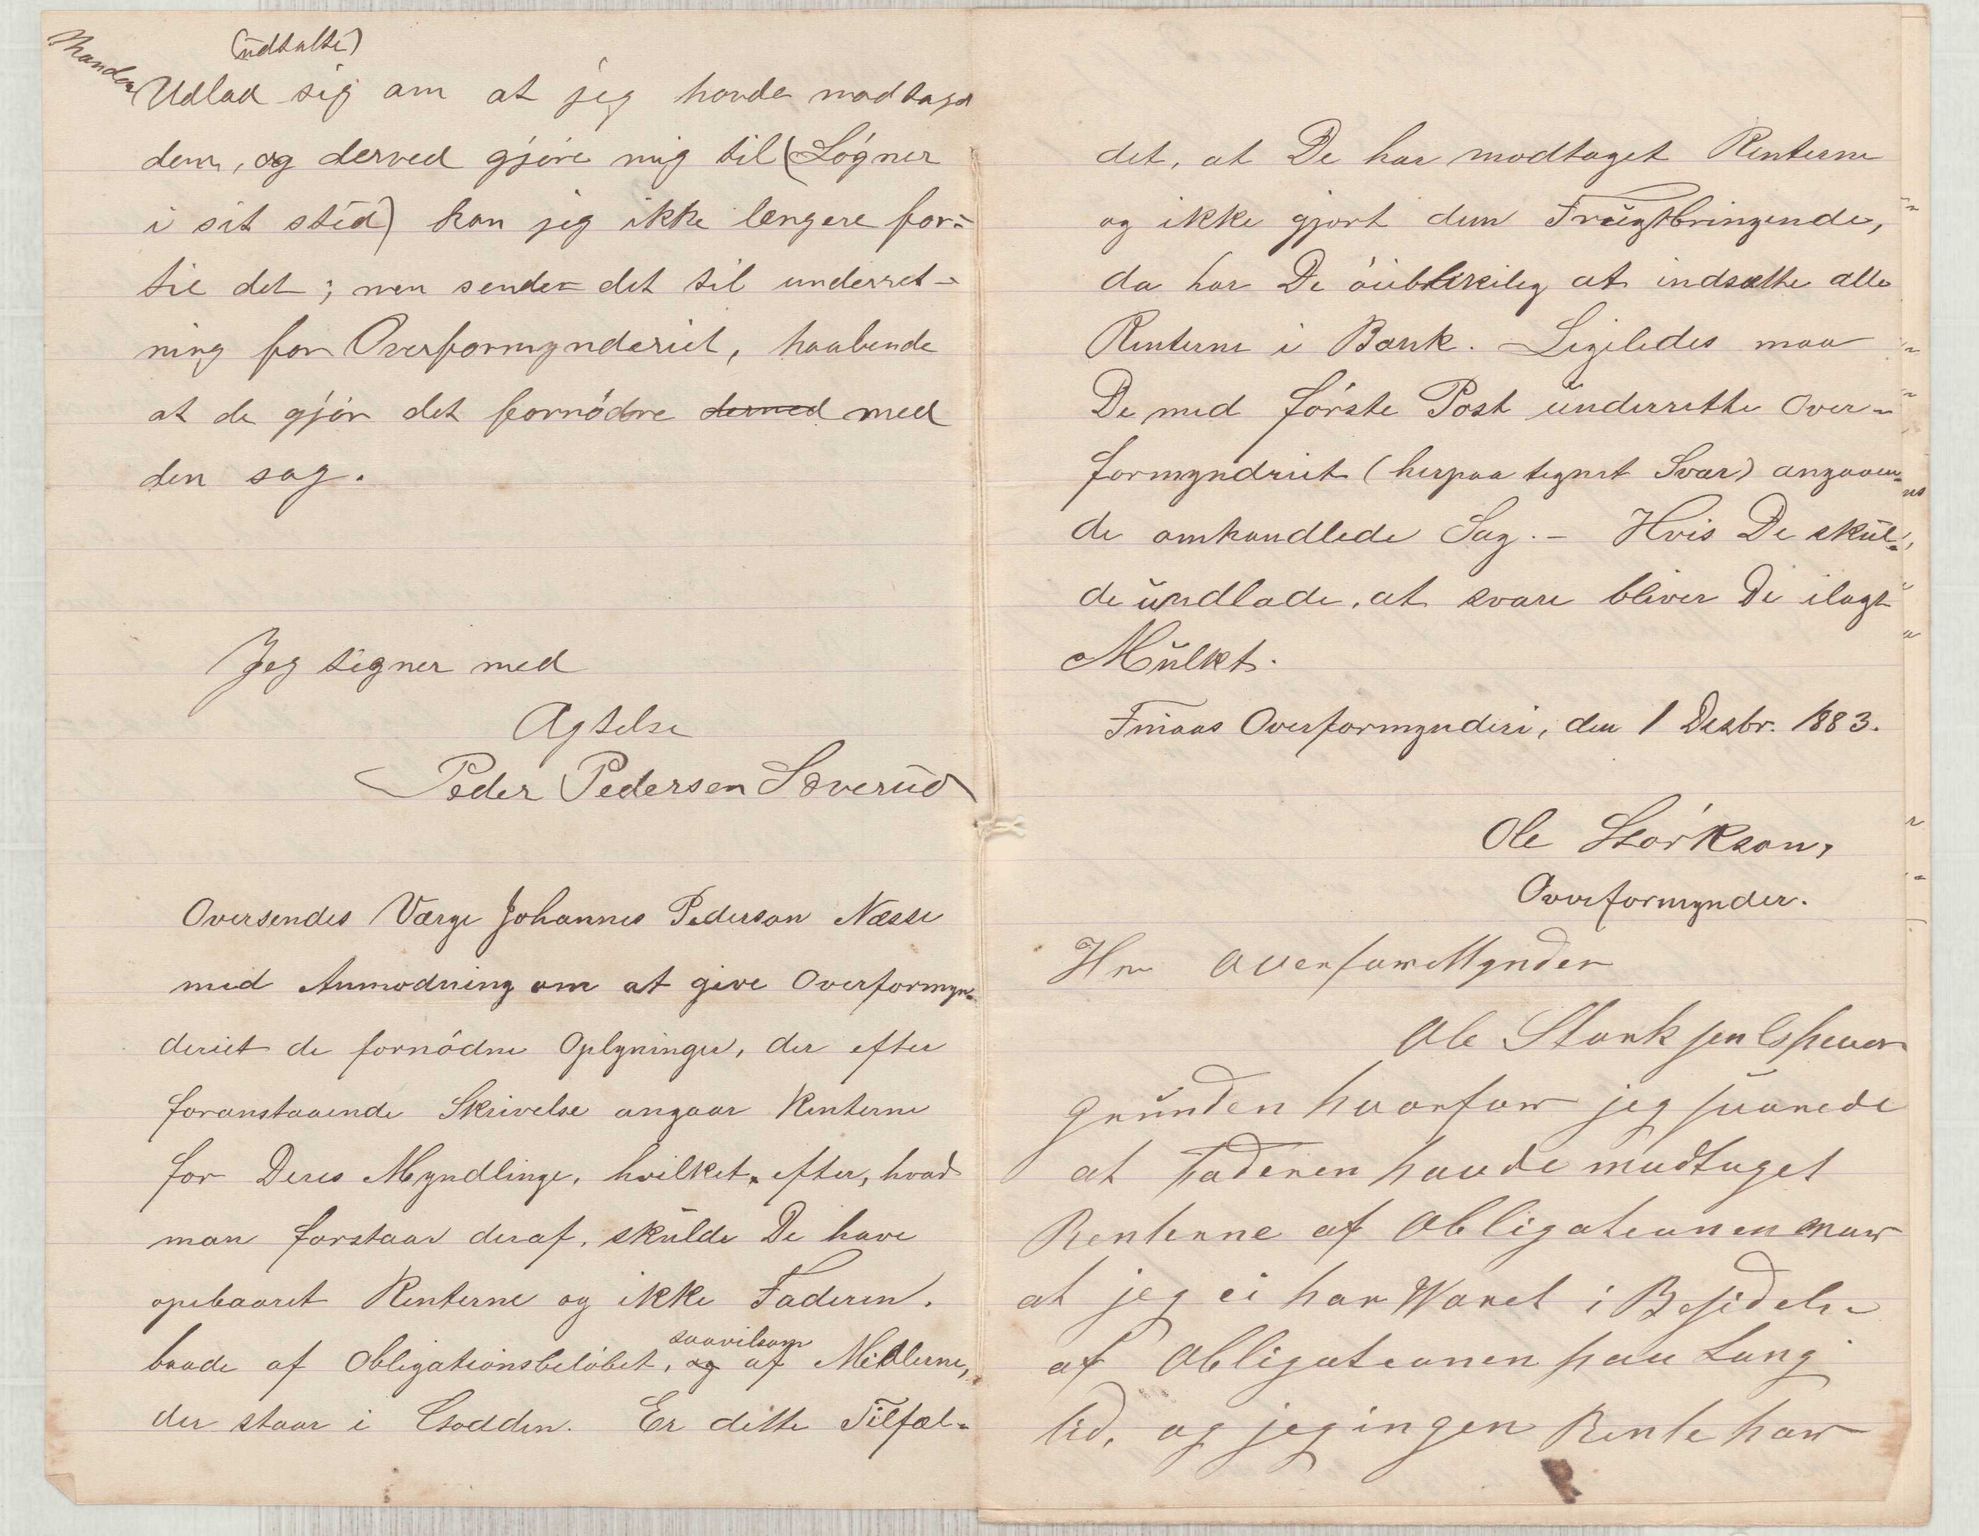 (udtalte)
Manden Udlad sig om at jeg havde modtaget
dem, og derved gjøre mig til (Løgner
i sit sted) kan jeg ikke længere for-
tie det; men sender det til underret-
ning for Overformynderiet, haabende
at de gjør det fornødne derved med
den sag.
Jeg tegner med
Agtelse
Peder Pedersen Sæverud
Oversendes Værge Johannes Pederson Næsse
med Anmodning om at give Overformyn-
deriet de fornødne Oplyninger, der efter
foranstaaende Skrivelse angaar Renterne
for Deres Myndlinge, hvilket, efter, hvad
man forstaar deraf, skulde De have
opebaaret Renterne og ikke Faderen.
saavelsom
baade af Obligationsbeløbet, og af Midlerne,
der staar i Gaarden. Er dette Tilfæl-
det, at De har modtaget Renterne
og ikke gjort dem Frugtbringende,
da har De at indsætte alle
Renterne i Bank. Ligeledes maa
De med første Post underrette Over-
formyndriet (herpaa tegnet Svar) angaaen-
de omhandlede Sag. – Hvis De skul-
de undlade, at svare bliver De ilagt
Mulkt.
Finaas Overformynderi, den 1 Desbr. 1883.
Ole Størkson,
Overformynder.
Hr. OverforMynder
Ole Storksen Espever
grunden hvorfor jeg svarede
at Faderen havde modtaget
Renterne af Obligationen var
at jeg ei har Været i Besidelse
af Obligationen paa Lang
tid, og jeg ingen Rente har